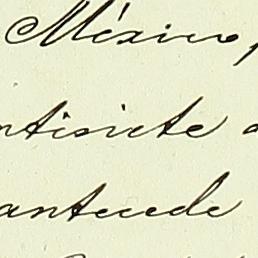 México,
ntisiete d
antecede